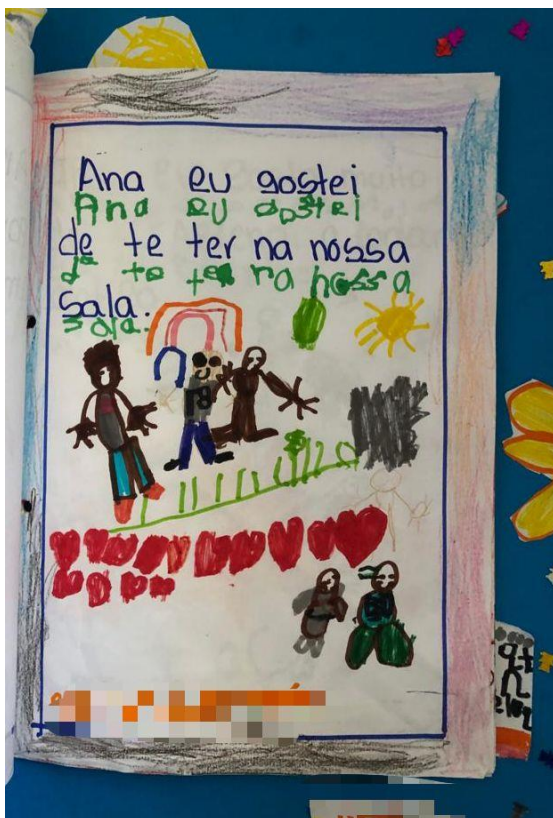 Ana eu gostei
Ana eu gostei
de te ter na nossa
de te ter na nossa
sala.
sala.